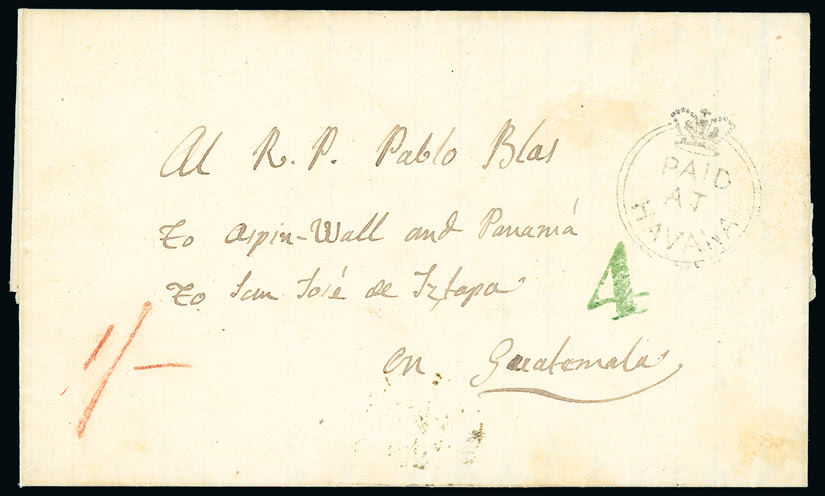 Al R. P. Pablo Blas
to Aspin-Wall and Panamá
to San José de Iztapa
on Guatemala
PAID
AT
HAVANA
4
1/-